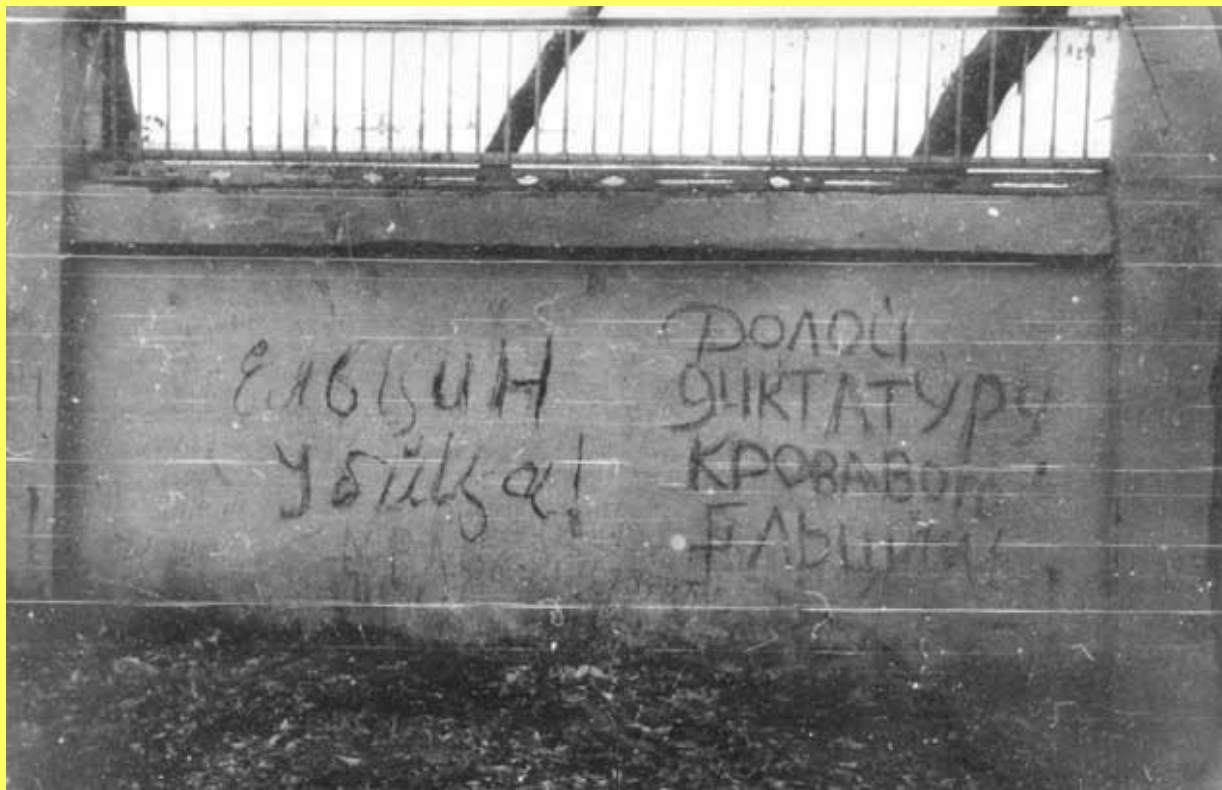 Ельцин
Убийца!
ДОЛОЙ
ДИКТАТУРУ
КРОВАВОГО
ЕЛЬЦИНА